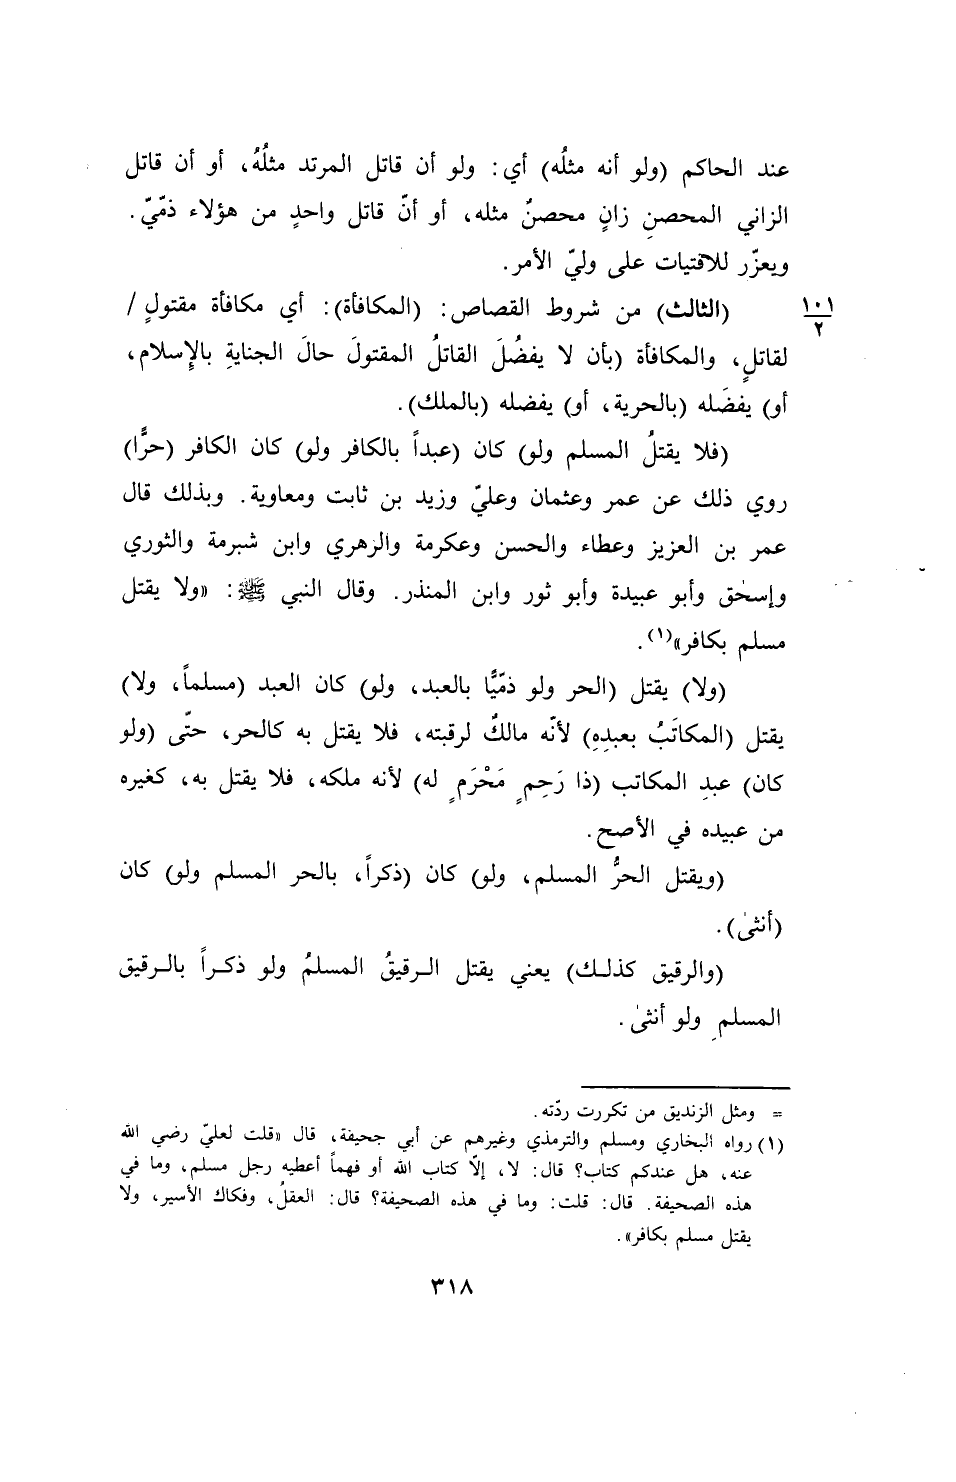 عند الحاكم (ولو أنه مثلُه) أي: ولو أن قاتل المرتد مثلُهُ، أو أن قاتل
الزاني المحصنِ زانٍ محصنٌ مثله، أو أنّ قاتل واحدٍ من هؤلاء ذمّيّ.
ويعزّر للافتيات على وليّ الأمر.
(الثالث) من شروط القصاص: (المكافأة): أي مكافأة مقتولٍ / ١٠١
٢
لقاتلٍ، والمكافأة (بأن لا يفضُلَ القاتلُ المقتولَ حالَ الجنايةِ بالإسلام،
أو) يفضَله (بالحرية، أو) يفضله (بالملك).
(فلا يقتلُ المسلم ولو) كان (عبداً بالكافر ولو) كان الكافر (حرًّا)
روي ذلك عن عمر وعثمان وعليّ وزيد بن ثابت ومعاوية. وبذلك قال
عمر بن العزيز وعطاء والحسن وعكرمة والزهري وابن شبرمة والثوري
وإسحٰق وأبو عبيدة وأبو ثور وابن المنذر. وقال النبي ﷺ: «ولا يقتل
مسلم بكافر»(١).
(ولا) يقتل (الحر ولو ذمّيًّا بالعبد، ولو) كان العبد (مسلماً، ولا)
يقتل (المكاتَبُ بعبدِهِ) لأنّه مالكٌ لرقبته، فلا يقتل به كالحر، حتّى (ولو
كان) عبدِ المكاتب (ذا رَحِمٍ مَحْرَمٍ له) لأنه ملكه، فلا يقتل به، كغيره
من عبيده في الأصح.
(ويقتل الحرُّ المسلم، ولو) كان (ذكراً، بالحر المسلم ولو) كان
(أنثىٰ).
(والرقيق كذلك) يعني يقتل الرقيقُ المسلمُ ولو ذكراً بالرقيق
المسلمِ ولو أنثىٰ.
= ومثل الزنديق من تكررت ردّته.
(١) رواه البخاري ومسلم والترمذي وغيرهم عن أبي جحيفة، قال «قلت لعليّ رضي الله
عنه، هل عندكم كتاب؟ قال: لا، إلّا كتاب الله أو فهماً أعطيه رجل مسلم، وما في
هذه الصحيفة. قال: قلت: وما في هذه الصحيفة؟ قال: العقلُ، وفكاك الأسير، ولا
يقتل مسلم بكافر».
٣١٨